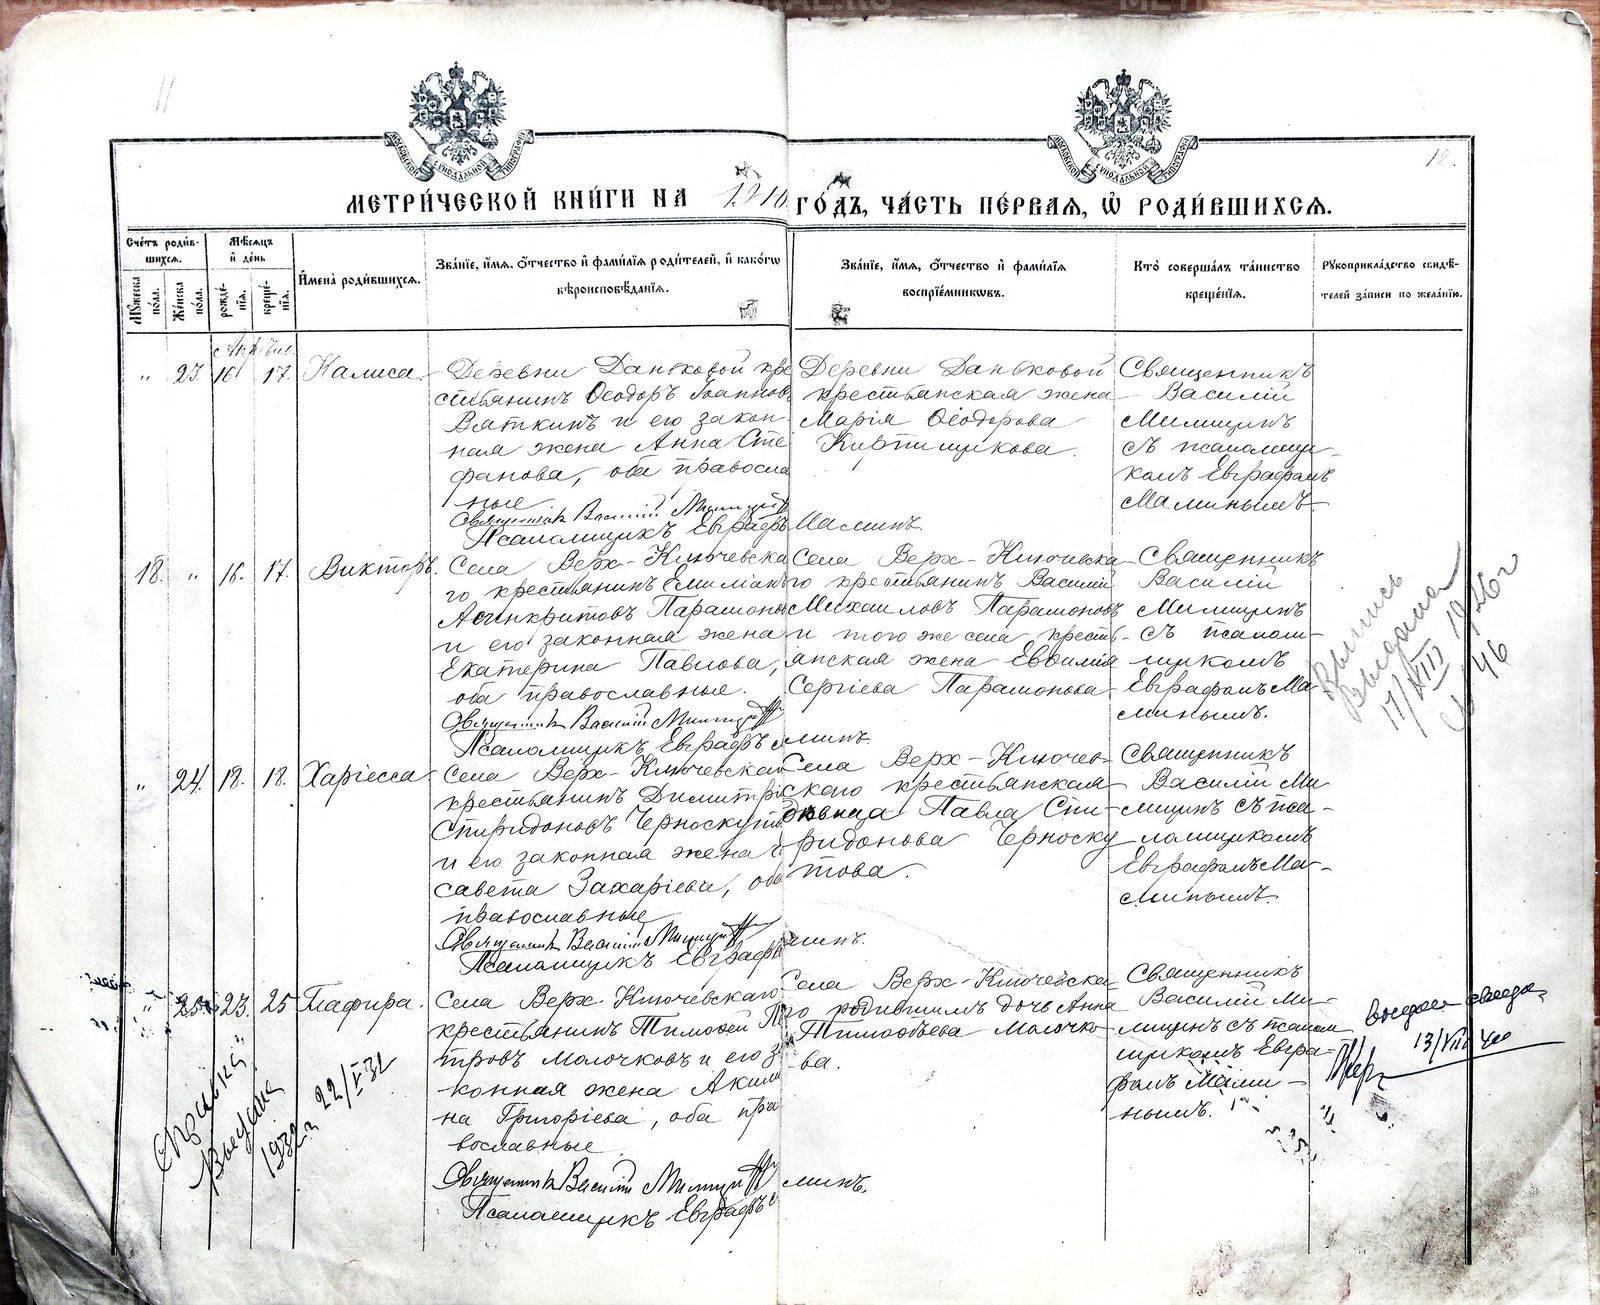 11
12.
МОСКОВСКОЙ СѴНОДАЛЬНОЙ ТИПОГРАФІИ
МОСКОВСКОЙ СѴНОДАЛЬНОЙ ТИПОГРАФІИ
МЕТРИ́ЧЕСКОЙ КНИ́ГИ НА 1910 ГО́ДЪ, ЧА́СТЬ ПЕ́РВАЯ, Ѽ РОДИ́ВШИХСЯ.
Сче́тъ роди́в-
шихся.
Мꙋ́жеска по́ла.
Же́нска по́ла.
Мѣ́сяцъ
и҆ де́нь
рожде́-нїѧ.
креще́-нїѧ.
И҆мена̀ роди́вшихся.
Зва́нїе, и҆́мѧ, ѻ҆́тчество и҆ фами́лїѧ роди́телей, и҆ како́гѡ
вѣроисповѣ́данїѧ.
Зва́нїе, и҆́мѧ, ѻ҆́тчество и҆ фами́лїѧ
воспрїе́мникѡвъ.
Кто̀ соверша́лъ та́инство
креще́нїѧ.
Рꙋкоприкла́дство свидѣ́-
телей за́писи по жела́нїю.
Апрѣль
" 23. 16. 17. Налиса.
Деревни Даньковой кре
стьянинъ Ѳеодоръ Іоанновъ
Вяткинъ и его закон-
ная жена Анна Сте
фанова, оба правосла
ные
Священникъ Василій Милицинъ
Псаломщикъ Евграфъ Маминъ.
Деревни Даньковой
крестьянская жена
Марія Ѳеодорова
Кирпищикова.
Священникъ
Василій
Милицинъ
съ псаломщи-
комъ Евграфомъ
Маминымъ
18. " 16. 17. Викторъ.
Села Верх-Ключевска
го крестьянинъ Емиліанъ
Асинкритовъ Парамоновъ
и его законная жена
Екатерина Павлова,
оба православные.
Священникъ Василій Милицинъ
Псаломщикъ Евграфъ Маминъ.
Села Верх-Ключевска
го крестьянинъ Василій
Михаиловъ Парамоновъ
и того же села кресть-
янская жена Евѳимія
Сергіева Парамонова
Священникъ
Василій
Милицинъ
съ псалом-
щикомъ
Евграфомъ Ма-
минымъ.
Выпись
Выдана
17/VIII 1926 г
№ 46
" 24. 18. 18. Харіесса
Села Верх-Ключевскаго
крестьянинъ Димитрій
Спиридоновъ Черноскутовъ
и его законная жена Ели
савета Захаріева, оба
православные
Священникъ Василій Милицинъ
Псаломщикъ Евграфъ Маминъ.
Села Верх-Ключев-
скаго крестьянская
дѣвица Павла Спи-
ридонова Черноску
това.
Священникъ
Василій Ми-
лицинъ съ пса-
ломщикомъ
Евграфомъ Ма-
минымъ.
" 25. 23. 25 Глафира.
Села Верх-Ключевскаго
крестьянинъ Тимоѳей Пе
тровъ Молочковъ и его за
конная жена Акили
на Григоріева, оба пра
вославные.
Священникъ Василій Милицинъ
Псаломщикъ Евграфъ Маминъ.
Села Верх-Ключевска
го родившимъ дочь Анна
Тимоѳѣева Молочко
-ва.
Священникъ
Василій Ми-
лицинъ съ псалом
щикомъ Евгра-
фомъ Мами-
нымъ.
13/VIII 40
Справка
Выдана
1932 г 22/V 32